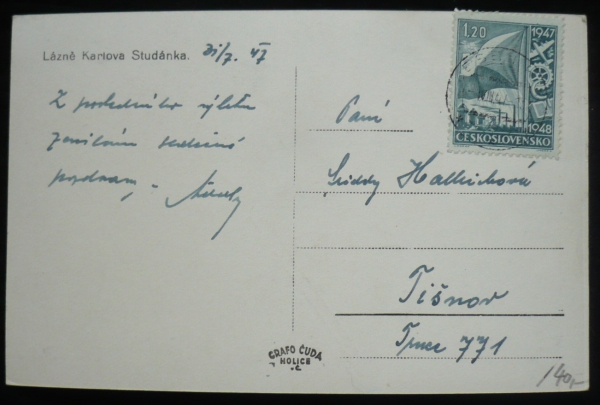 Lázně Karlova Studánka. 31/7. 47
Z posledního výletu
zasílám srdečné
pozdravy
1.20
1947
1948
ČESKOSLOVENSKO
Paní
Hallichová
Tišnov
771
GRAFO ČUDA
HOLICE
v. Č.
140,-